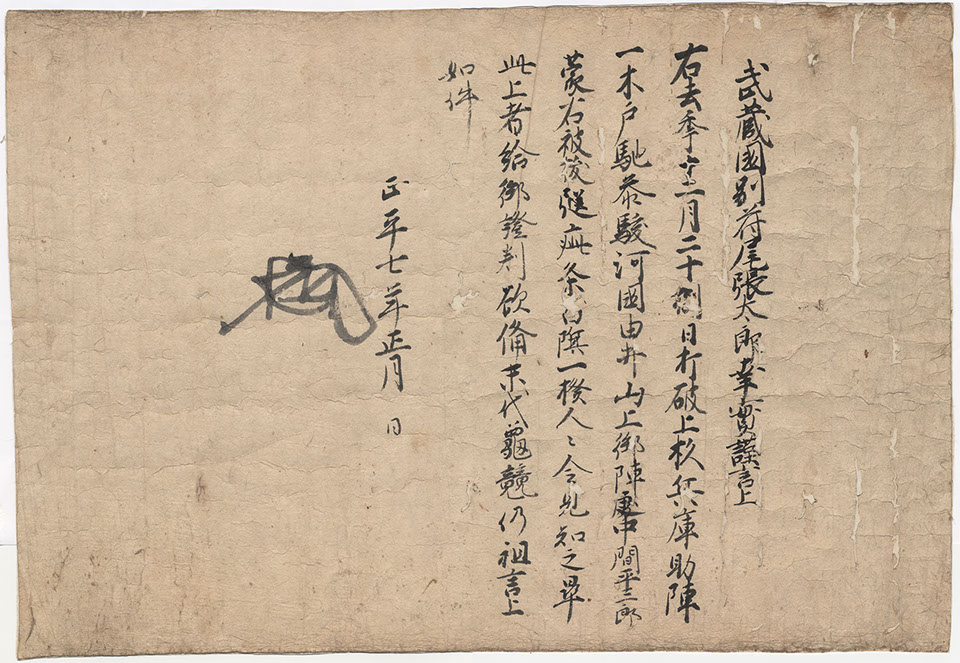 武蔵國別苻尾張太郎幸實謹言上
右去季十二月二十九日打破上杦兵庫助陣
一木戸馳参駿河國由井山上御陣處中間平三郎
蒙右被後疵条白旗一揆人〻令見知之畢
此上者給御證判欲備末代龜鏡仍粗言上
如件
正平七年正月 日